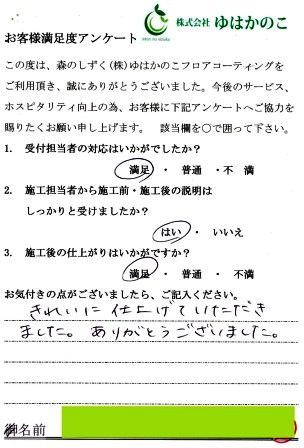 Mori no sizuku
株式会社 ゆはかのこ
お客様満足度アンケート
この度は、森のしずく(株)ゆはかのこフロアコーティングを
ご利用頂き、誠にありがとうございました。今後のサービス、
ホスピタリティ向上の為、お客様に下記アンケートへご協力を
賜りたくお願い申し上げます。 該当欄を○で囲って下さい。
1. 受付担当者の対応はいかがでしたか?
満足 ・ 普通 ・ 不 満
2. 施工担当者から施工前・施工後の説明は
しっかりと受けましたか?
はい ・ いいえ
3. 施工後の仕上がりはいかがですか?
満足 ・ 普通 ・ 不満
お気付きの点がございましたら、ご記入ください。
きれいに仕上げていただき
ました。ありがとうございました。
御名前